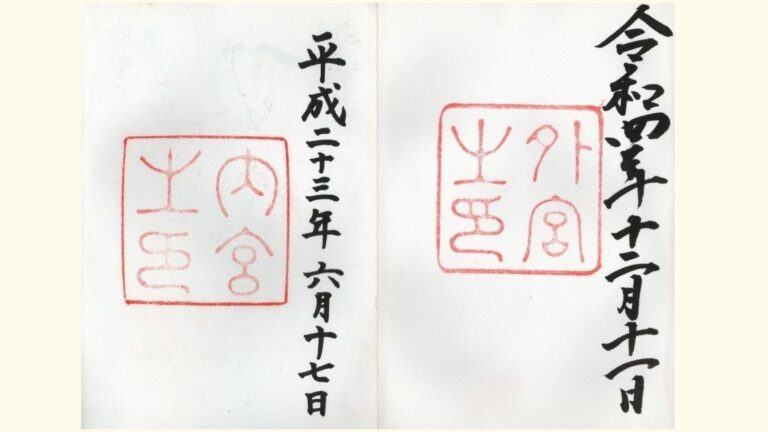 令和四年十二月十一日
外宮
之印
平成二十三年 六月十七日
内宮
之印